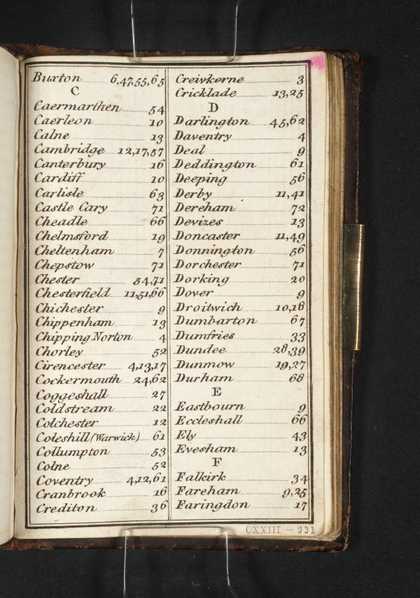 Buxton 6,47,55,65
C
Caermarthen 54
Caerleon 10
Calne 13
Cambridge 12,17,57
Canterbury 16
Cardiff 10
Carlisle 63
Castle Cary 71
Cheadle 66
Chelmsford 19
Cheltenham 7
Chepstow 71
Chester 54,71
Chesterfield 11,51,66
Chichester 9
Chippenham 13
Chipping Norton 4
Chorley 52
Cirencester 4,13,17
Cockermouth 24,62
Coggeshall 27
Coldstream 22
Colchester 12
Coleshill (Warwick) 61
Collumpton 53
Colne 52
Coventry 4,12,61
Cranbrook 16
Crediton 36
Crewkerne 3
Cricklade 13,25
D
Darlington 45,62
Daventry 4
Deal 9
Deddington 61
Deeping 56
Derby 11,41
Dereham 72
Devizes 13
Doncaster 11,49
Donnington 56
Dorchester 71
Dorking 20
Dover 9
Droitwich 10,18
Dumbarton 67
Dumfries 33
Dundee 28,39
Dunmow 19,27
Durham 68
E
Eastbourn 9
Eccleshall 66
Ely 43
Evesham 13
F
Falkirk 34
Fareham 9,25
Faringdon 17
CXXIII - 231